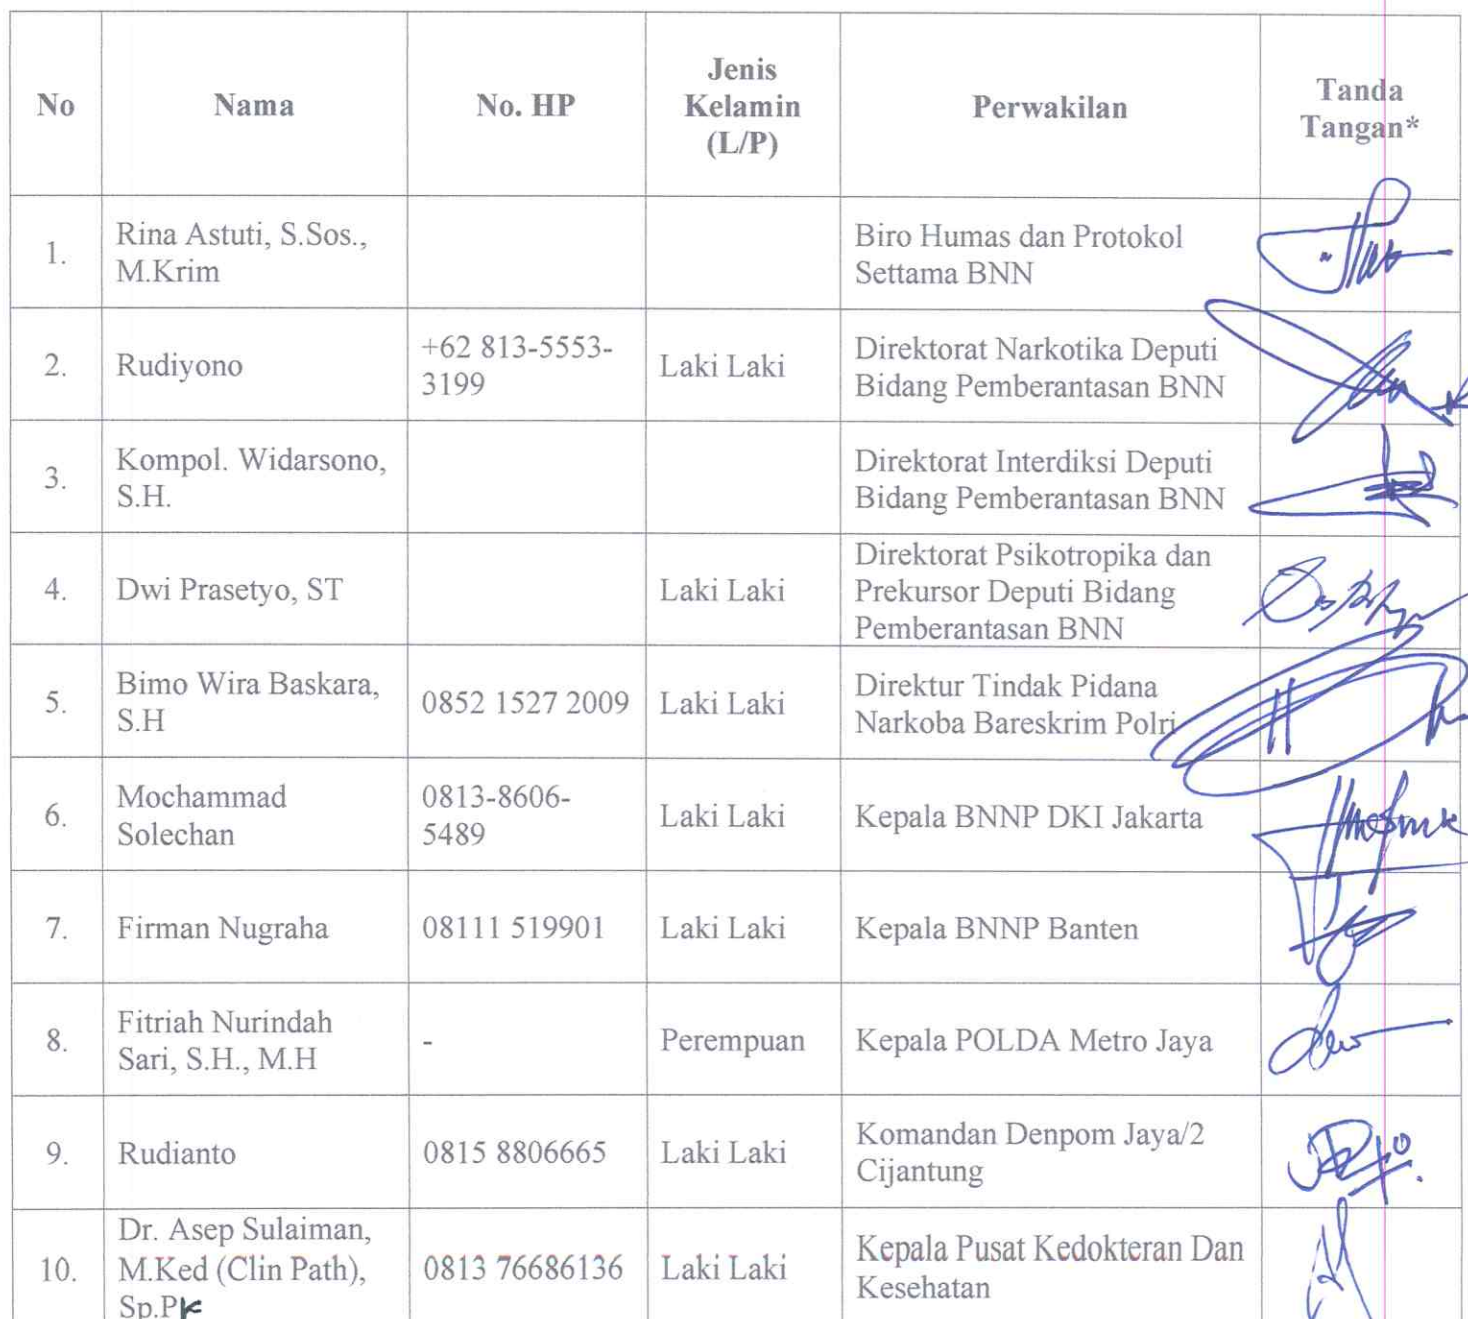 No
Nama
No. HP
Jenis
Kelamin
(L/P)
Perwakilan
Tanda
Tangan*
1.
Rina Astuti, S.Sos.,
M.Krim
Biro Humas dan Protokol
Settama BNN
2.
Rudiyono
+62 813-5553-
3199
Laki Laki
Direktorat Narkotika Deputi
Bidang Pemberantasan BNN
3.
Kompol. Widarsono,
S.H.
Direktorat Interdiksi Deputi
Bidang Pemberantasan BNN
4.
Dwi Prasetyo, ST
Laki Laki
Direktorat Psikotropika dan
Prekursor Deputi Bidang
Pemberantasan BNN
5.
Bimo Wira Baskara,
S.H
0852 1527 2009
Laki Laki
Direktur Tindak Pidana
Narkoba Bareskrim Polri
6.
Mochammad
Solechan
0813-8606-
5489
Laki Laki
Kepala BNNP DKI Jakarta
7.
Firman Nugraha
08111 519901
Laki Laki
Kepala BNNP Banten
8.
Fitriah Nurindah
Sari, S.H., M.H
-
Perempuan
Kepala POLDA Metro Jaya
9.
Rudianto
0815 8806665
Laki Laki
Komandan Denpom Jaya/2
Cijantung
10.
Dr. Asep Sulaiman,
M.Ked (Clin Path),
Sp.PK
0813 76686136
Laki Laki
Kepala Pusat Kedokteran Dan
Kesehatan